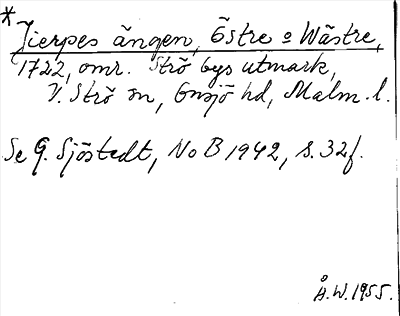 * Jierpes ängen, Östre o Wästre,
1722, omr. Strö bys utmark,
V. Strö sn, Onsjö hd, Malm. l.
Se G. Sjöstedt, NoB 1942, s. 32f.
Å.W. 1955.